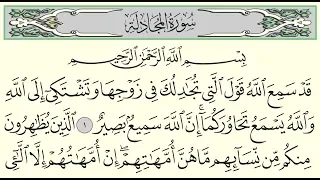 سُورَةُ المُجَادلَةِ
بِسْمِ اللَّهِ الرَّحْمَٰنِ الرَّحِيمِ
قَدْ سَمِعَ اللَّهُ قَوْلَ الَّتِي تُجَٰدِلُكَ فِي زَوْجِهَا وَتَشْتَكِي إِلَى اللَّهِ
وَاللَّهُ يَسْمَعُ تَحَاوُرَكُمَا إِنَّ اللَّهَ سَمِيعٌ بَصِيرٌ ١ الَّذِينَ يُظَٰهِرُونَ
مِنكُم مِّن نِّسَآئِهِم مَّا هُنَّ أُمَّهَٰتِهِمْ إِنْ أُمَّهَٰتُهُمْ إِلَّا الَّٰٓـِٔي